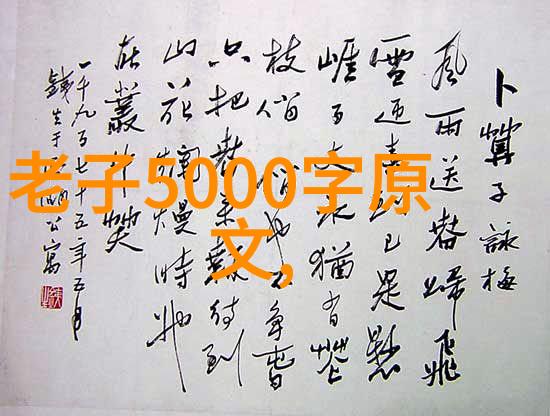 老子5000字原
文,
卜算子詠梅
風雨送春歸飛
雪迎春到已是懸
崖百丈冰猶有花
枝俏俏也不爭春
只把春來報待到
山花爛熳時她
在叢中笑
一千九百七十五年五月
公寓